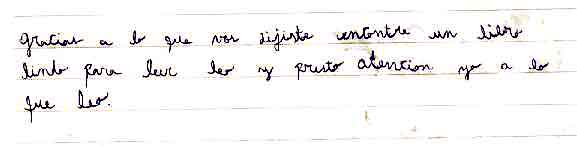 gracias a lo que vos dijiste encontre un libro
lindo para leer leo y presto atention yo a lo
que leo.